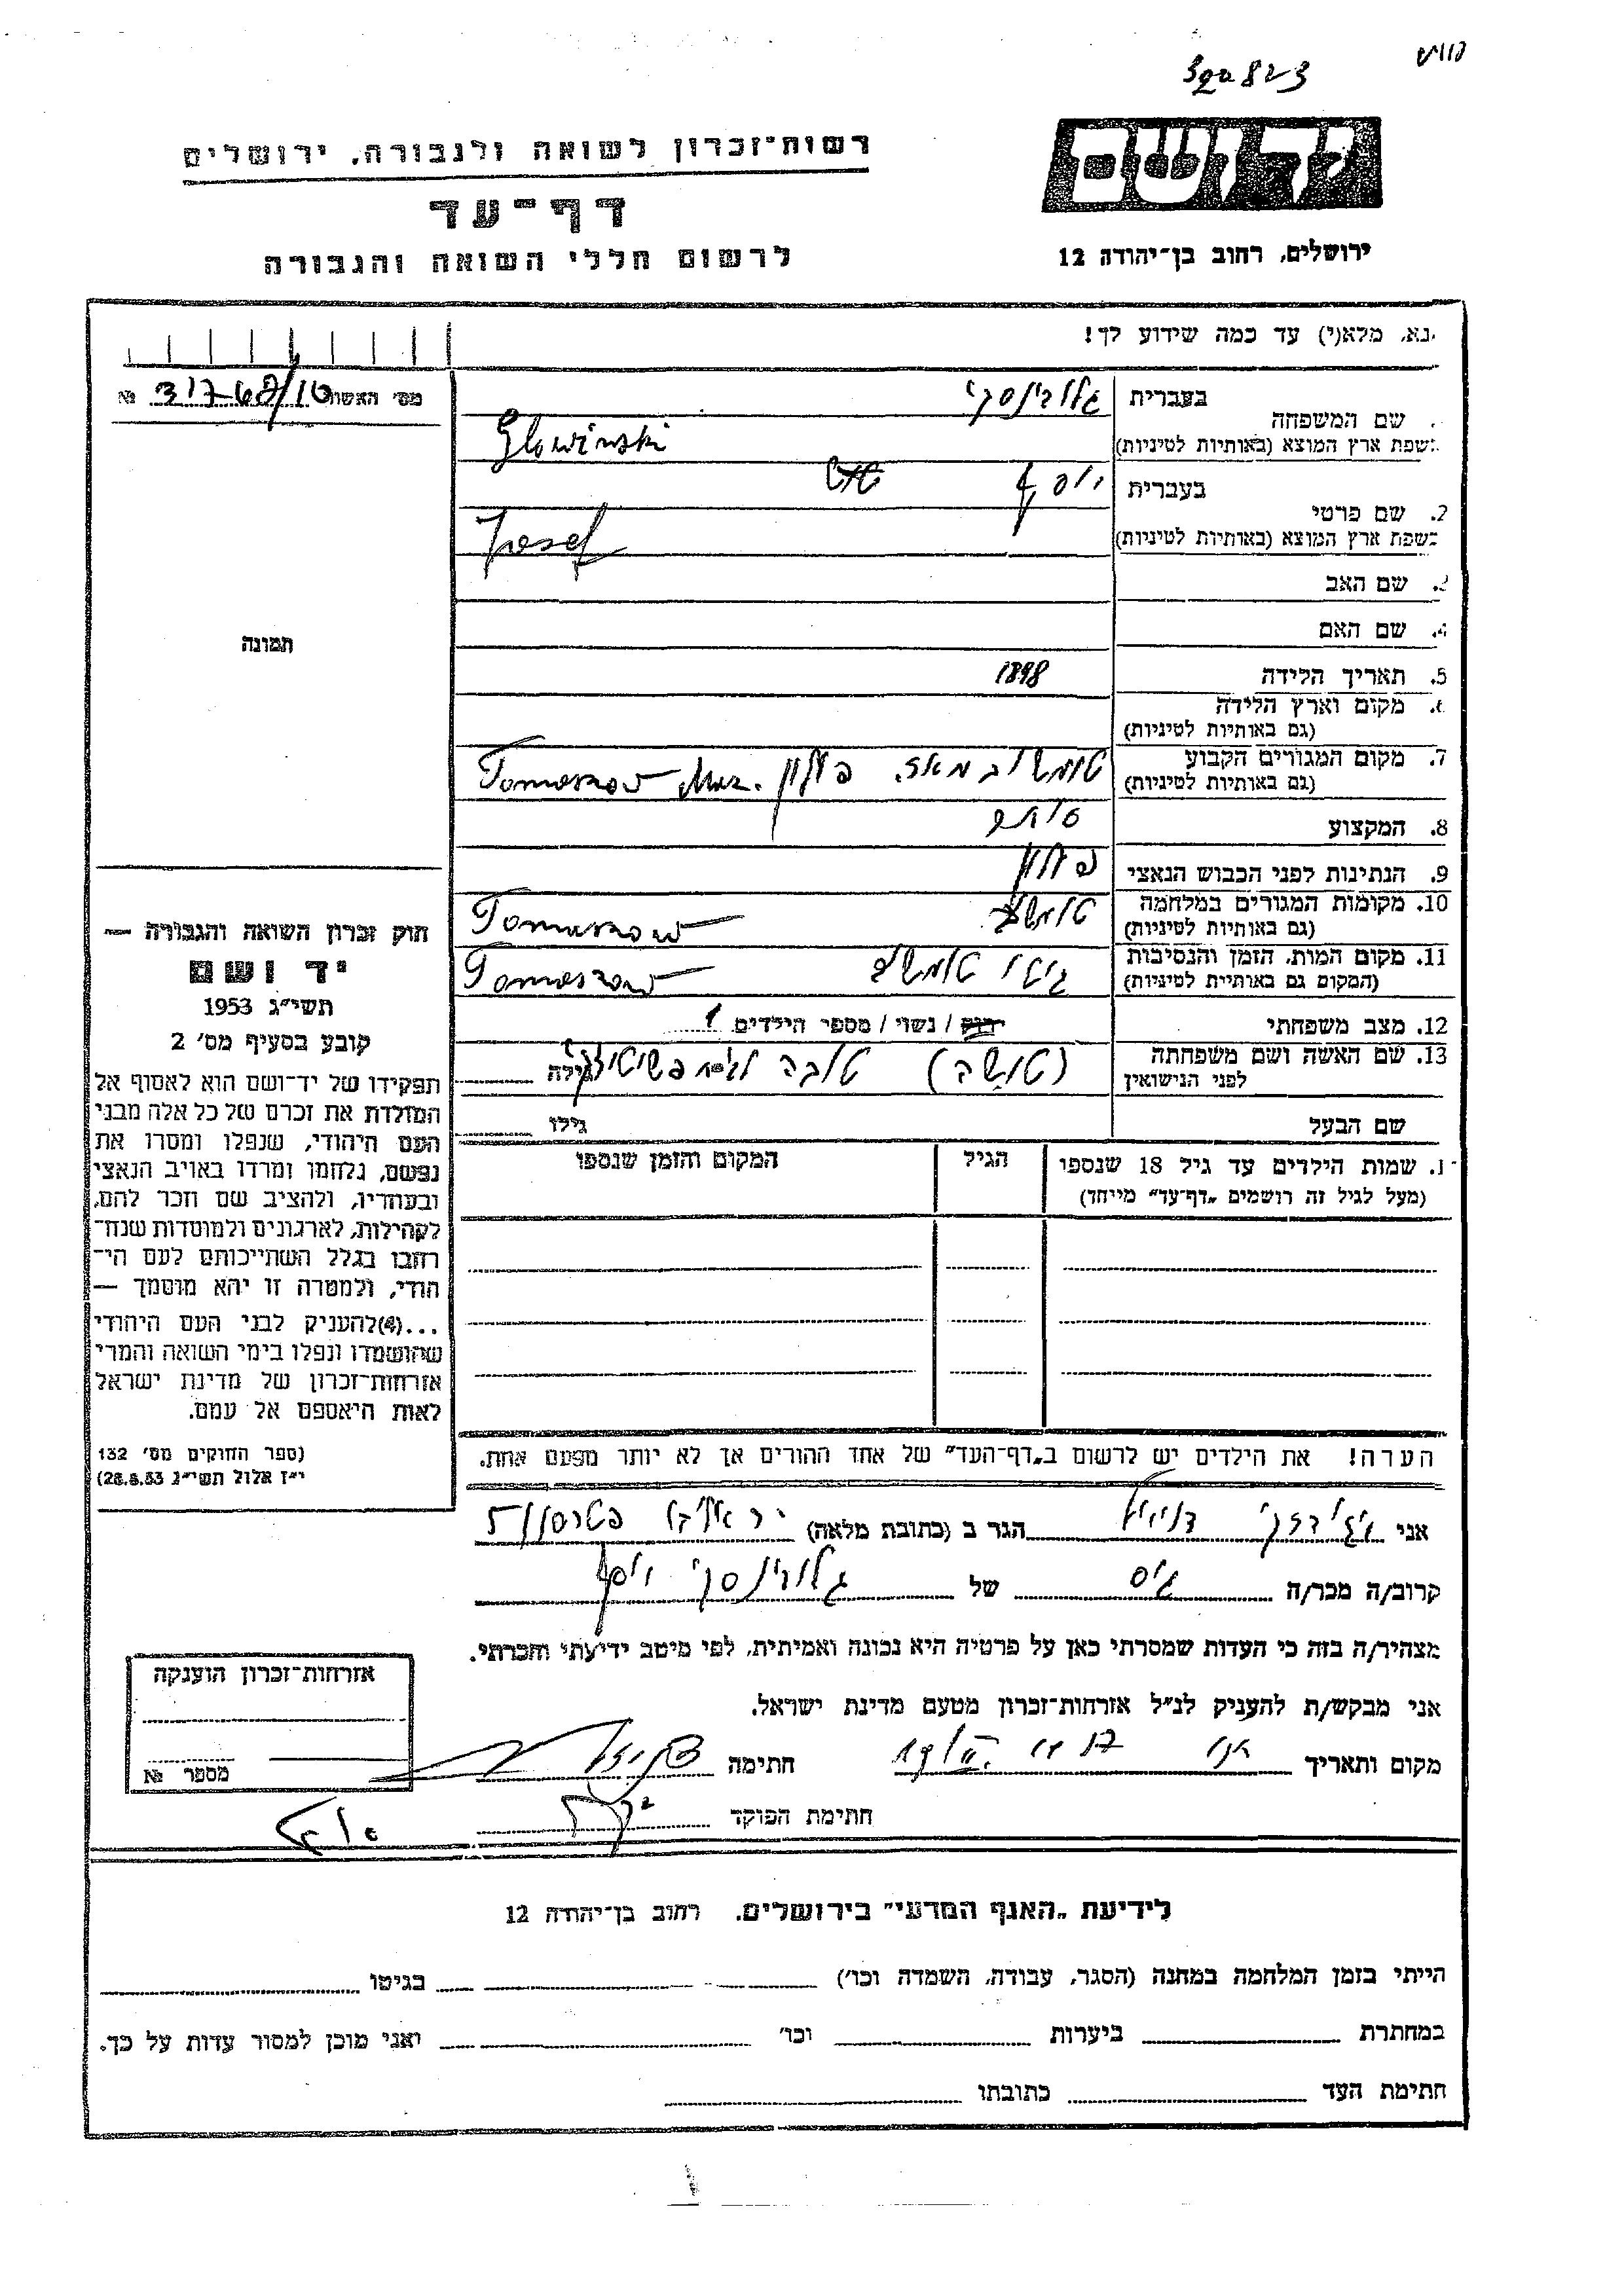 יד ושם
רשות־זכרון לשואה ולגבורה, ירושלים
דף־עד
לרשום חללי השואה והגבורה
ירושלים, רחוב בן־יהודה 12
נא, מלא(י) עד כמה שידוע לך!
מס׳ האשור № 317-68/10
בעברית גלובינסקי
שם המשפחה
בשפת ארץ המוצא (באותיות לטיניות) Glowinski
בעברית יוסף
2. שם פרטי
בשפת ארץ המוצא (באותיות לטיניות) Josef
3. שם האב
4. שם האם
5. תאריך הלידה 1898
6. מקום וארץ הלידה
(גם באותיות לטיניות)
7. מקום המגורים הקבוע טומשוב מאז. פולין Tomaszow Maz.
(גם באותיות לטיניות)
8. המקצוע סוחר
9. הנתינות לפני הכבוש הנאצי פולין
10. מקומות המגורים במלחמה טומשוב Tomaszow
(גם באותיות לטיניות)
11. מקום המות, הזמן והנסיבות גיטו טומשוב Tomaszow
(המקום גם באותיות לטיניות)
12. מצב משפחתי רווק / נשוי / מספר הילדים 1
13. שם האשה ושם משפחתה טובה גילה
לפני הנישואין
שם הבעל גילו
שמות הילדים עד גיל 18 שנספו הגיל המקום והזמן שנספו
(מעל לגיל זה רושמים „דף־עד״ מייחד)
הערה! את הילדים יש לרשום ב„דף־העד״ של אחד ההורים אך לא יותר מפעם אחת.
תמונה
חוק זכרון השואה והגבורה —
יד ושם
תשי״ג 1953
קובע בסעיף מס׳ 2
תפקידו של יד־ושם הוא לאסוף אל
המולדת את זכרם של כל אלה מבני
העם היהודי, שנפלו ומסרו את
נפשם, נלחמו ומרדו באויב הנאצי
ובעוזריו, ולהציב שם וזכר להם,
לקהילות, לארגונים ולמוסדות שנח־
רבו בגלל השתייכותם לעם הי־
הודי, ולמטרה זו יהא מוסמך —
...(4)להעניק לבני העם היהודי
שהושמדו ונפלו בימי השואה והמרי
אזרחות־זכרון של מדינת ישראל
לאות היאספם אל עמם.
(ספר החוקים מס׳ 132
י״ז אלול תשי״ג 28.8.53)
אני הגר ב (כתובת מלאה)
קרוב/ה מכר/ה גיס של גלובינסקי יוסף
מצהיר/ה בזה כי העדות שמסרתי כאן על פרטיה היא נכונה ואמיתית, לפי מיטב ידיעתי והכרתי.
אני מבקש/ת להעניק לנ״ל אזרחות־זכרון מטעם מדינת ישראל.
מקום ותאריך חתימה
חתימת הפוקד
אזרחות־זכרון הוענקה
מספר №
לידיעת „האגף המדעי״ בירושלים, רחוב בן־יהודה 12
הייתי בזמן המלחמה במחנה (הסגר, עבודה, השמדה וכו׳) בגיטו
במחתרת ביערות וכו׳ ואני מוכן למסור עדות על כך.
חתימת העד כתובתו